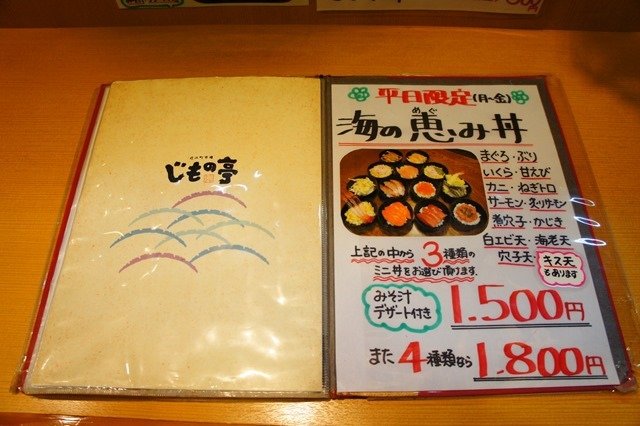 じもの亭
平日限定(月~金)
めぐ
海の恵み丼
まぐろ・ぶり
いくら・甘えび
カニ・ねぎトロ
サーモン・炙りサーモン
煮穴子・かじき
白エビ天・海老天
穴子天・
キス天
もあります
上記の中から3種類の
ミニ丼をお選び頂けます。
みそ汁
デザート付き
1.500円
また4種類なら1.800円